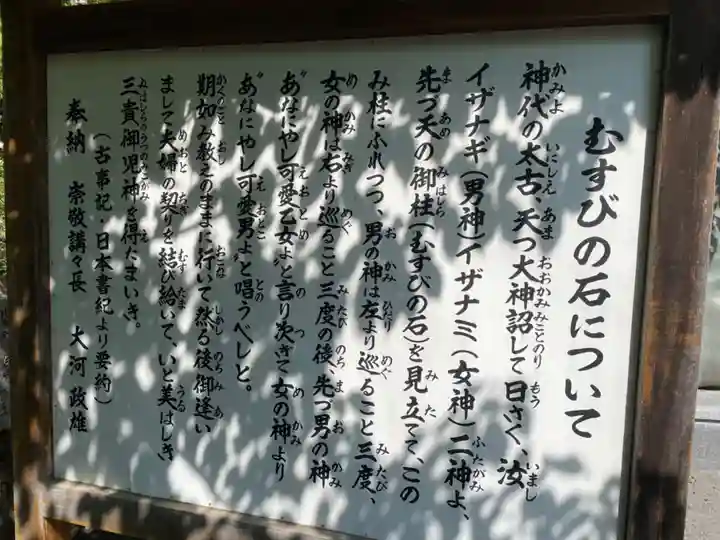 むすびの石について
神代の太古、天つ大神詔して曰さく、汝
イザナギ(男神)イザナミ(女神)二神よ、
先づ天の御柱(むすびの石)を見立てて、この
み柱にふれつつ、男の神は左より巡ること三度、
女の神は右より巡ること三度の後、先づ男の神
〝あなにやし可愛乙女〟と言り次ぎて女の神より
〝あなにやし可愛男〟と唱うべしと。
期如み教えのままに行いて然る後御逢い
まして夫婦の契りを結び給いて、いと美はしき
三貴御児神を得たまいき。
(古事記・日本書紀より要約)
奉納 崇敬講々長 大河政雄